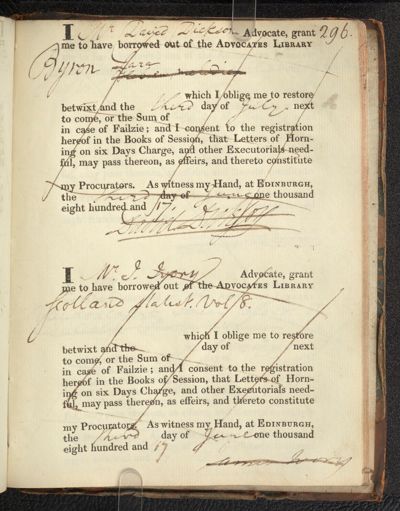 I Mr David Dickson Advocate, grant 296.
me to have borrowed out of the ADVOCATES LIBRARY
Byron Lara
which I oblige me to restore
betwixt and the third day of July next
to come, or the Sum of
in case of Failzie; and I consent to the registration
hereof in the Books of Session, that Letters of Horn-
ing on six Days Charge, and other Executorials need-
ful, may pass thereon, as effeirs, and thereto constitute
my Procurators. As witness my Hand, at EDINBURGH,
the third day of June one thousand
eight hundred and 17
David Dickson
I Mr. J. Ivory Advocate, grant
me to have borrowed out of the ADVOCATES LIBRARY
Scotland Statist. Vol 8.
which I oblige me to restore
betwixt and the day of next
to come, or the Sum of
in case of Failzie; and I consent to the registration
hereof in the Books of Session, that Letters of Horn-
ing on six Days Charge, and other Executorials need-
ful, may pass thereon, as effeirs, and thereto constitute
my Procurators. As witness my Hand, at EDINBURGH,
the third day of June one thousand
eight hundred and 17
James Ivory